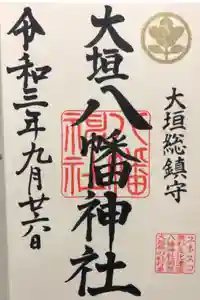 大垣総鎮守
大垣八幡神社
八幡神社
令和三年九月廿六日
ユネスコ